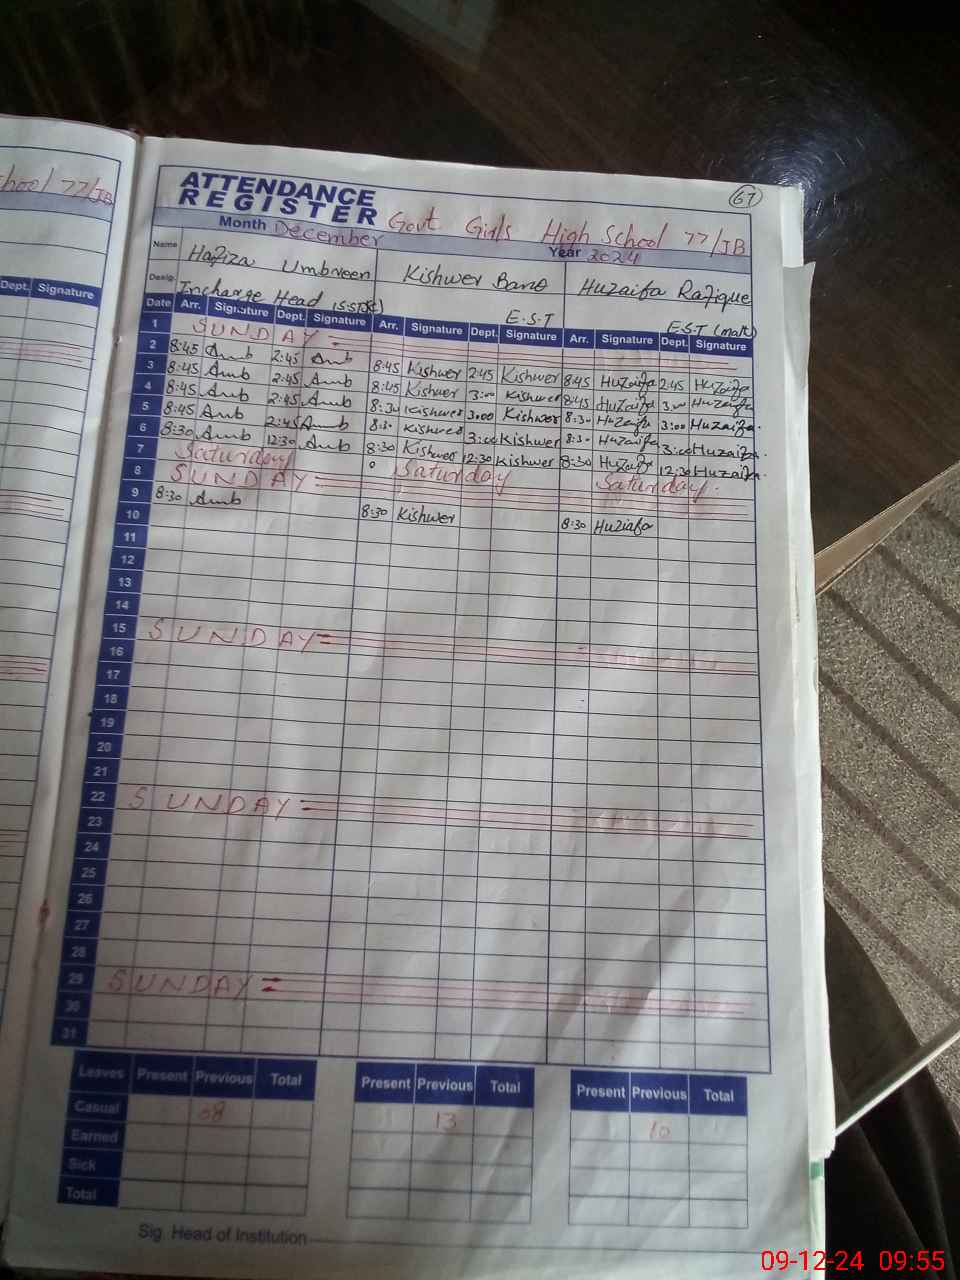 chool 77/JB
Dept. Signature
67
ATTENDANCE
REGISTER Govt Girls High School 77/JB
Month December Year 2024
Name Hafiza Umbreen Kishwer Bano Huzaifa Rafique
Desig. Incharge Head (S.S.T(Sc) E.S.T E.S.T (math)
Date Arr. Signature Dept. Signature Arr. Signature Dept. Signature Arr. Signature Dept. Signature
1 SUNDAY
2 8:45 Amb 2:45 Amb 8:45 Kishwer 2:45 Kishwer 8:45 Huzaifa 2:45 Huzaifa
3 8:45 Amb 2:45 Amb 8:45 Kishwer 3:00 Kishwer 8:45 Huzaifa 3:00 Huzaifa
4 8:45 Amb 2:45 Amb 8:30 Kishwer 3:00 Kishwer 8:30 Huzaifa 3:00 Huzaifa.
5 8:45 Amb 2:45 Amb 8:30 Kishwer 3:00 Kishwer 8:30 Huzaifa 3:00 Huzaifa.
6 8:30 Amb 12:30 Amb 8:30 Kishwer 12:30 Kishwer 8:30 Huzaifa 12:30 Huzaifa.
7 Saturday Saturday Saturday.
8 SUNDAY
9 8:30 Amb 8:30 Kishwer 8:30 Huziafa
10
11
12
13
14
15 SUNDAY
16
17
18
19
20
21
22 SUNDAY
23
24
25
26
27
28
29 SUNDAY
30
31
Leaves Present Previous Total Present Previous Total Present Previous Total
Casual 08 13 10
Earned
Sick
Total
Sig. Head of Institution
09-12-24 09:55